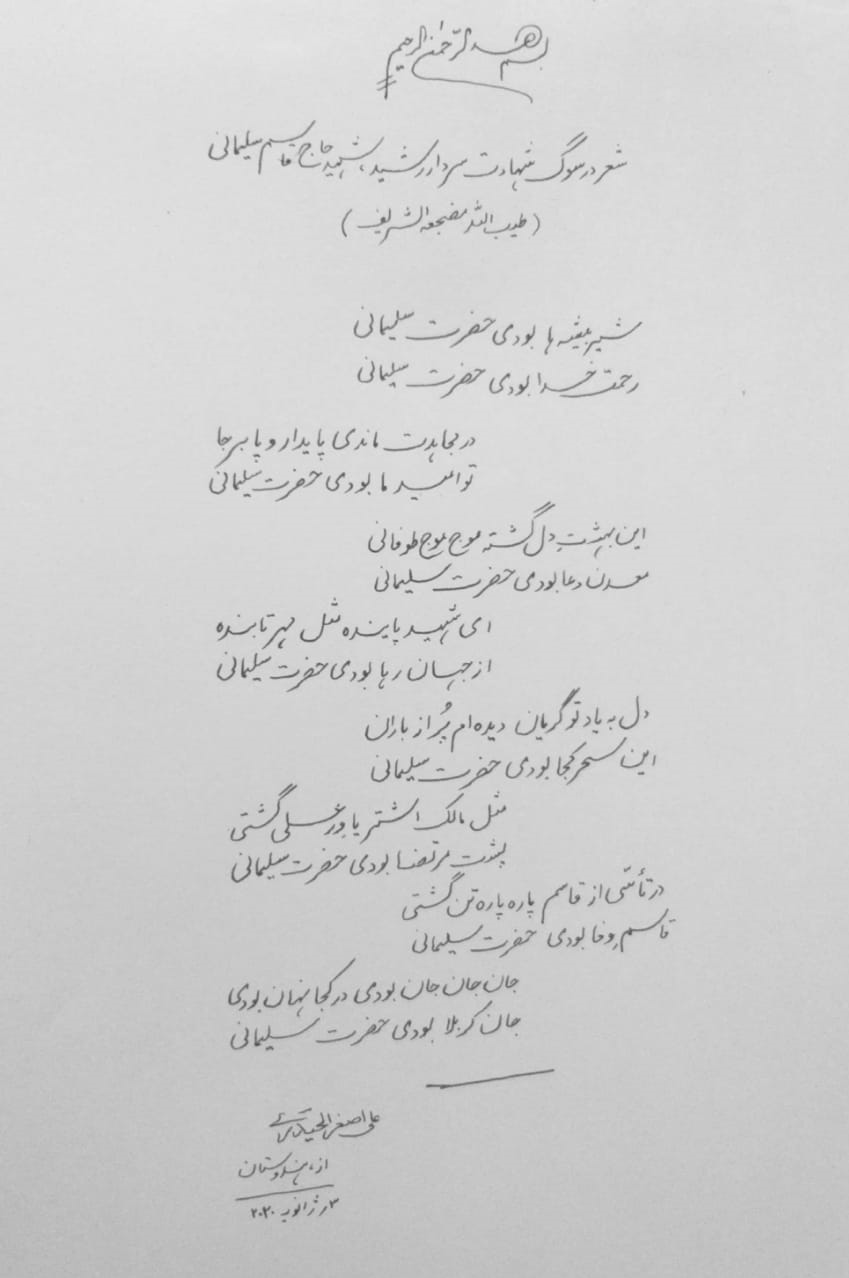 بسم الله الرحمن الرحیم
شعر در سوگ شهادت سردار رشید، شهید حاج قاسم سلیمانی
(طیب الله مضجعه الشریف)
شیر بیشه ها بودی حضرت سلیمانی
رحمت خدا بودی حضرت سلیمانی
در مجاهدت ماندی پایدار و پا برجا
تو امید ما بودی حضرت سلیمانی
این بهشتِ دل گشته موج موج طوفانی
معدن دعا بودی حضرت سلیمانی
ای شهید پاینده مثل مهر تابنده
از جهان رها بودی حضرت سلیمانی
دل به یاد تو گریان دیده ام پُر از باران
این سحر کجا بودی حضرت سلیمانی
مثل مالک اشتر یاور علی گشتی
پشت مرتضا بودی حضرت سلیمانی
در تأسّی از قاسم پاره پاره تن گشتی
قاسمِ وفا بودی حضرت سلیمانی
جان جان جان بودی در کجا نهان بودی
جان کربلا بودی حضرت سلیمانی
علی اصغر الحیدری
از، هندوستان
۳ ژانویه ۲۰۲۰